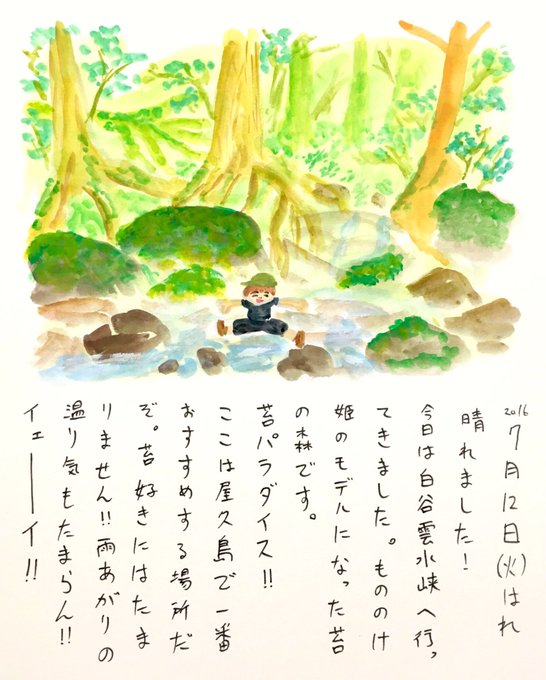 2016
7月12日(火)はれ
晴れました!
今日は白谷雲水峡へ行っ
てきました。もののけ
姫のモデルになった苔
の森です。
苔パラダイス!!
ここは屋久島で一番
おすすめする場所だ
ぞ。苔好きにはたま
りません!!雨あがりの
温り気もたまらん!!
イェーーイ!!